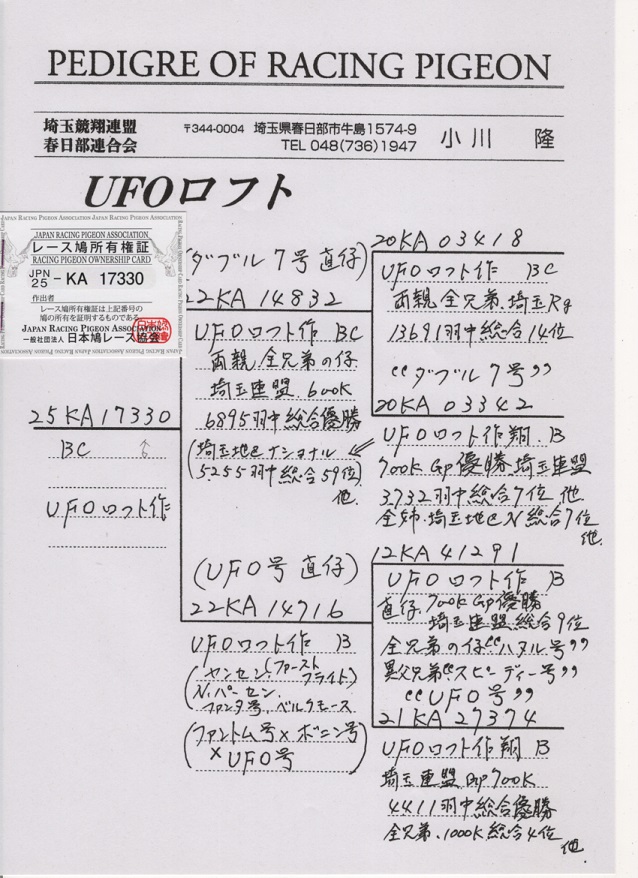 PEDIGRE OF RACING PIGEON
埼玉競翔連盟
春日部連合会
〒344-0004 埼玉県春日部市牛島1574-9
TEL 048(736)1947
小川 隆
UFOロフト
JAPAN RACING PIGEON ASSOCIATION JAPAN RACING PIGEON ASSOCIATION
JAPAN RACING PIGEON ASSOCIATION
レース鳩所有権証
RACING PIGEON OWNERSHIP CARD
JPN 25 - KA 17330
作出者
レース鳩所有権証は上記番号の
鳩の所有を証明するものである。
JAPAN RACING PIGEON ASSOCIATION
一般社団法人 日本鳩レース協会
25KA17330
BC ♂
UFOロフト作
(ダブル7号直仔)
22KA 14832
UFOロフト作 BC
両親.全兄弟の仔
埼玉連盟.600K
6895羽中総合優勝
(埼玉地区ナショナル
5.255羽中総合59位)
他.
(UFO号 直仔)
22KA 14716
UFOロフト作 B
(ヤンセン(ファーストフライト)
N.パーセン.
ファンタ号.ベルクモース
(ファントム号×ボニン号)
×UFO号
20KA 03418
UFOロフト作 BC
両親.全兄弟.埼玉Rg
13691羽中総合14位
"ダブル7号"
20KA 03342
UFOロフト作翔.B
700K Gp優勝.埼玉連盟
3.732羽中総合7位 他
全姉.埼玉地区N総合7位
他.
12KA 41291
UFOロフト作 B
直仔.700K Gp優勝
埼玉連盟.総合9位
全兄弟の仔"ハヌル号"
異父兄弟"スピーディー号"
"UFO号"
21KA 27374
UFOロフト作翔 B
埼玉連盟Gp700K
4411羽中総合優勝
全兄弟.1000K総合4位
他.